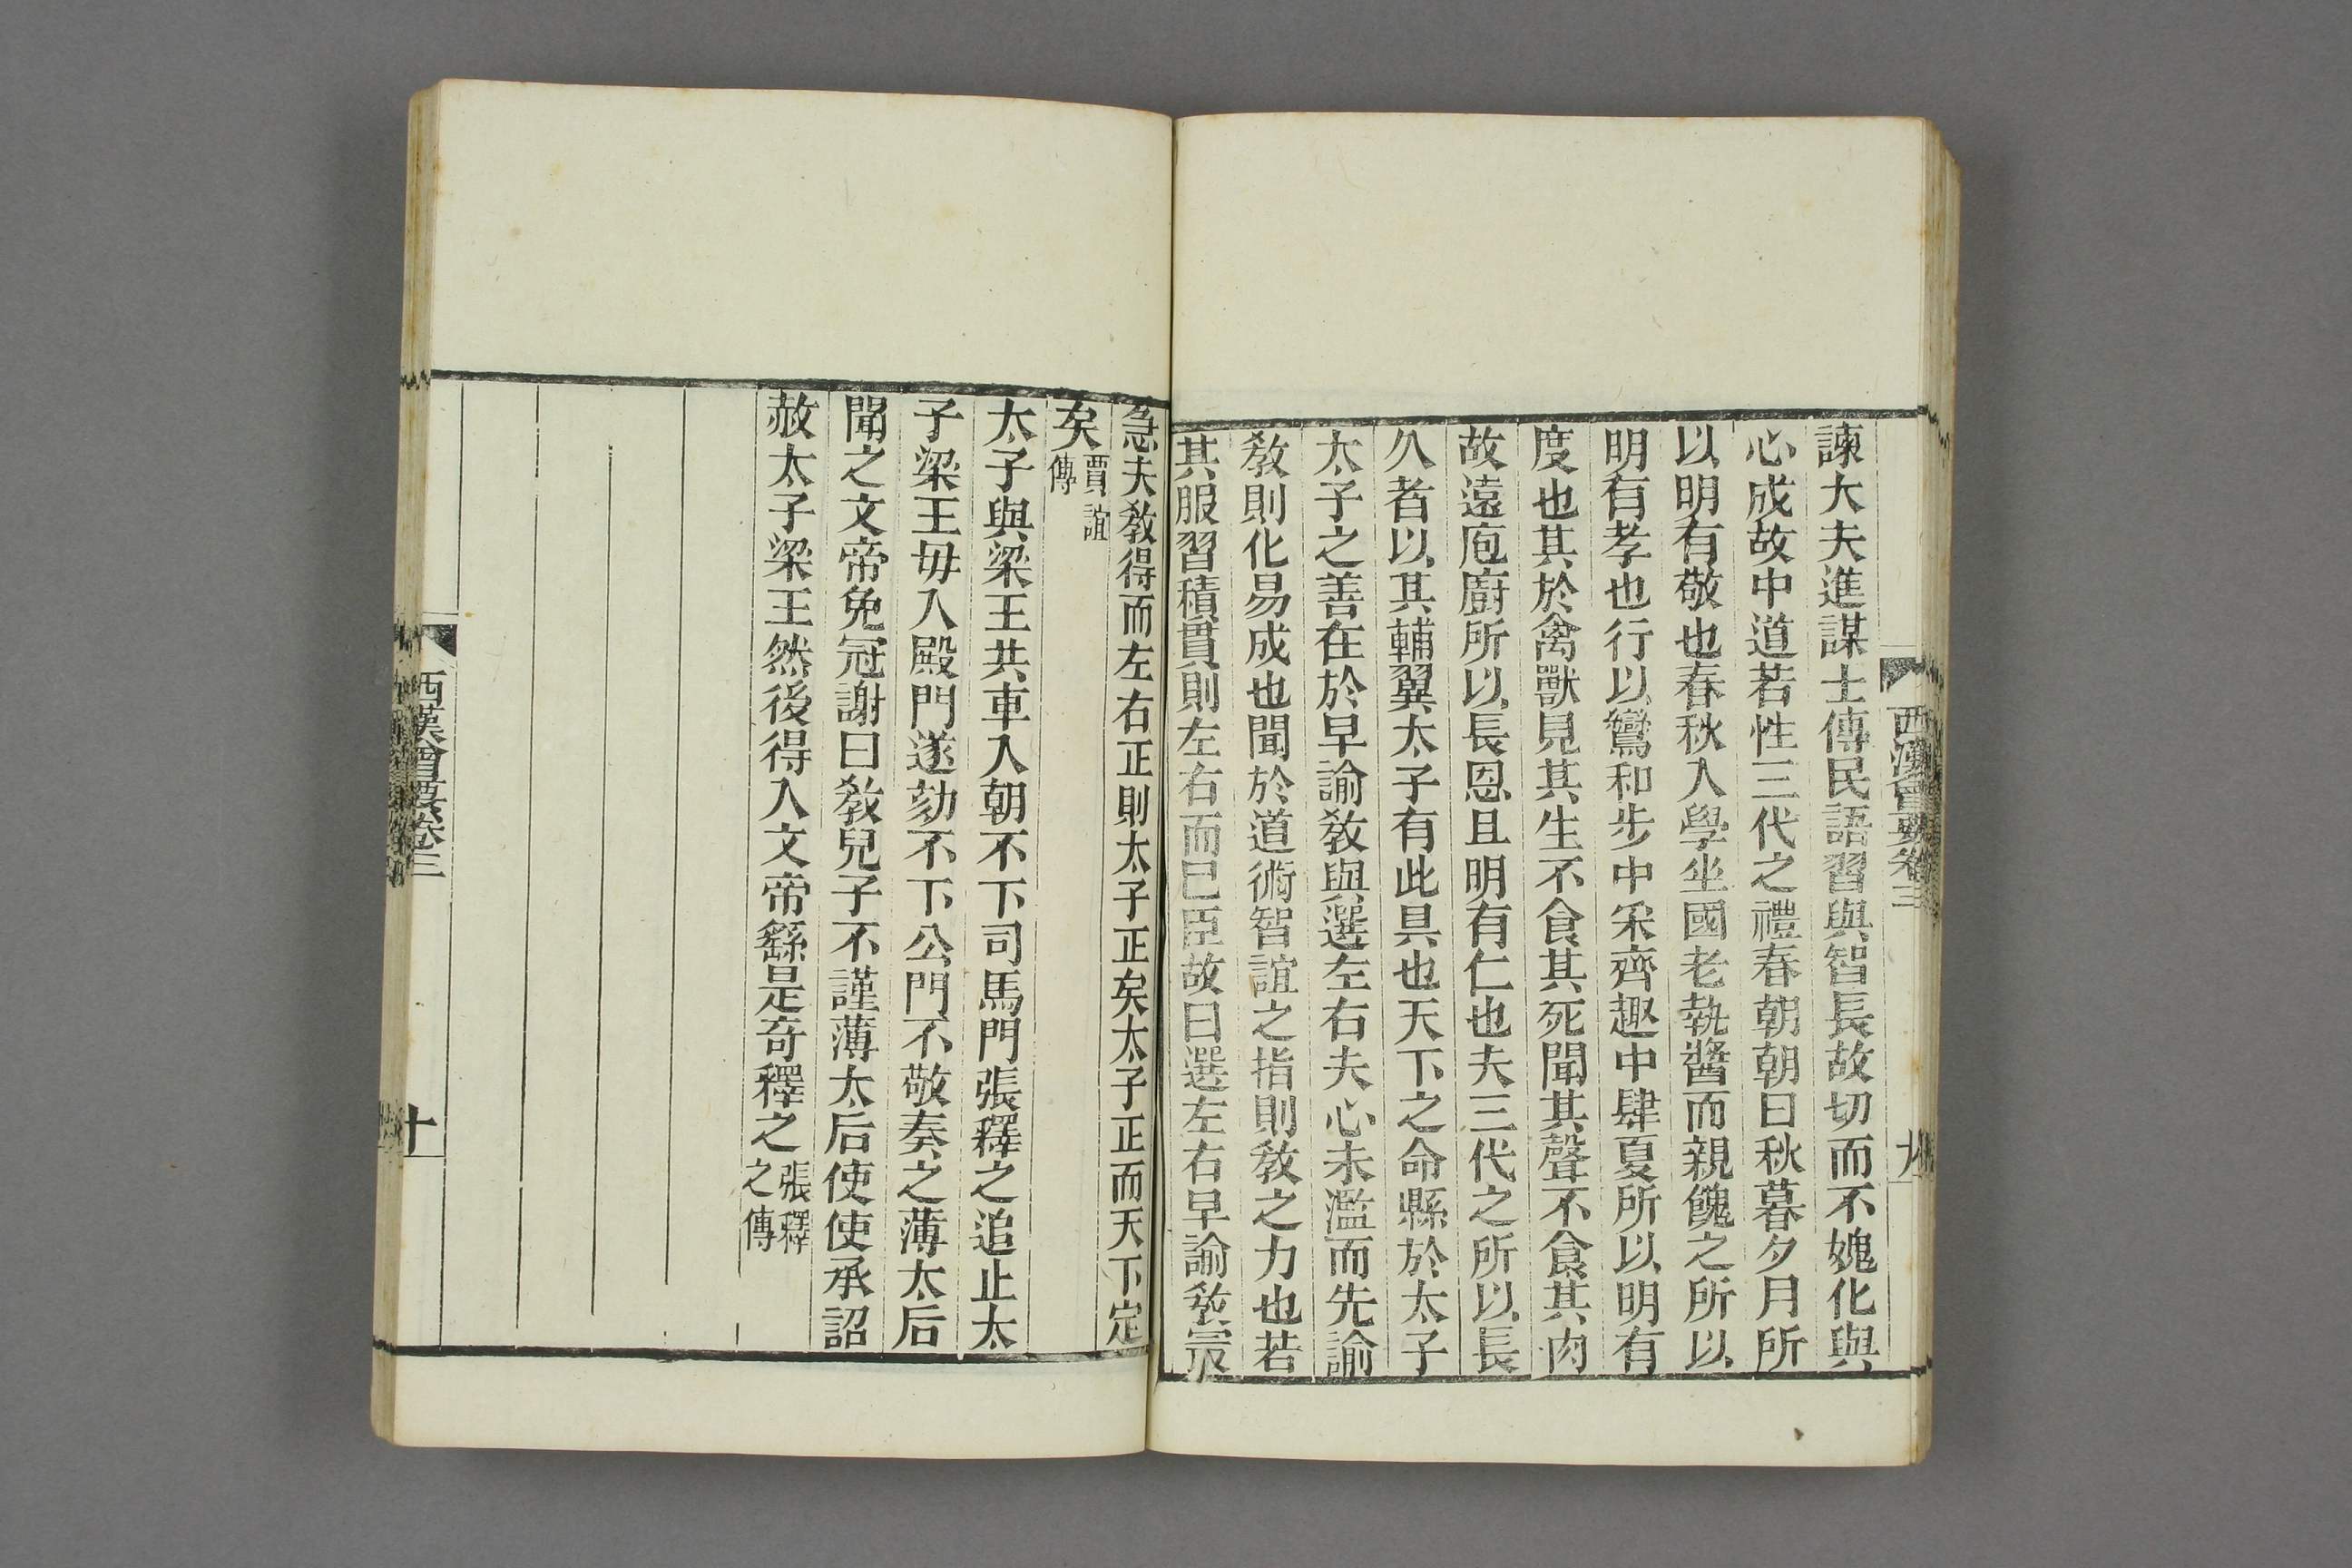 西漢會要卷三
九
諫大夫進謀士傳民語習與智長故切而不媿化與
心成故中道若性三代之禮春朝朝日秋暮夕月所
以明有敬也春秋入學坐國老執醬而親餽之所以
明有孝也行以鸞和步中采齊趣中肆夏所以明有
度也其於禽獸見其生不食其死聞其聲不食其肉
故遠庖廚所以長恩且明有仁也夫三代之所以長
久者以其輔翼太子有此具也天下之命縣於太子
太子之善在於早諭教與選左右夫心未濫而先諭
敎則化易成也聞於道術智誼之指則敎之力也若
其服習積貫則左右而已臣故曰選左右早諭敎最
急夫敎得而左右正則太子正矣太子正而天下定
矣賈誼傳
太子與梁王共車入朝不下司馬門張釋之追止太
子梁王毋入殿門遂劾不下公門不敬奏之薄太后
聞之文帝免冠謝曰敎兒子不謹薄太后使使承詔
赦太子梁王然後得入文帝繇是奇釋之張釋之傳
西漢會要卷三
十